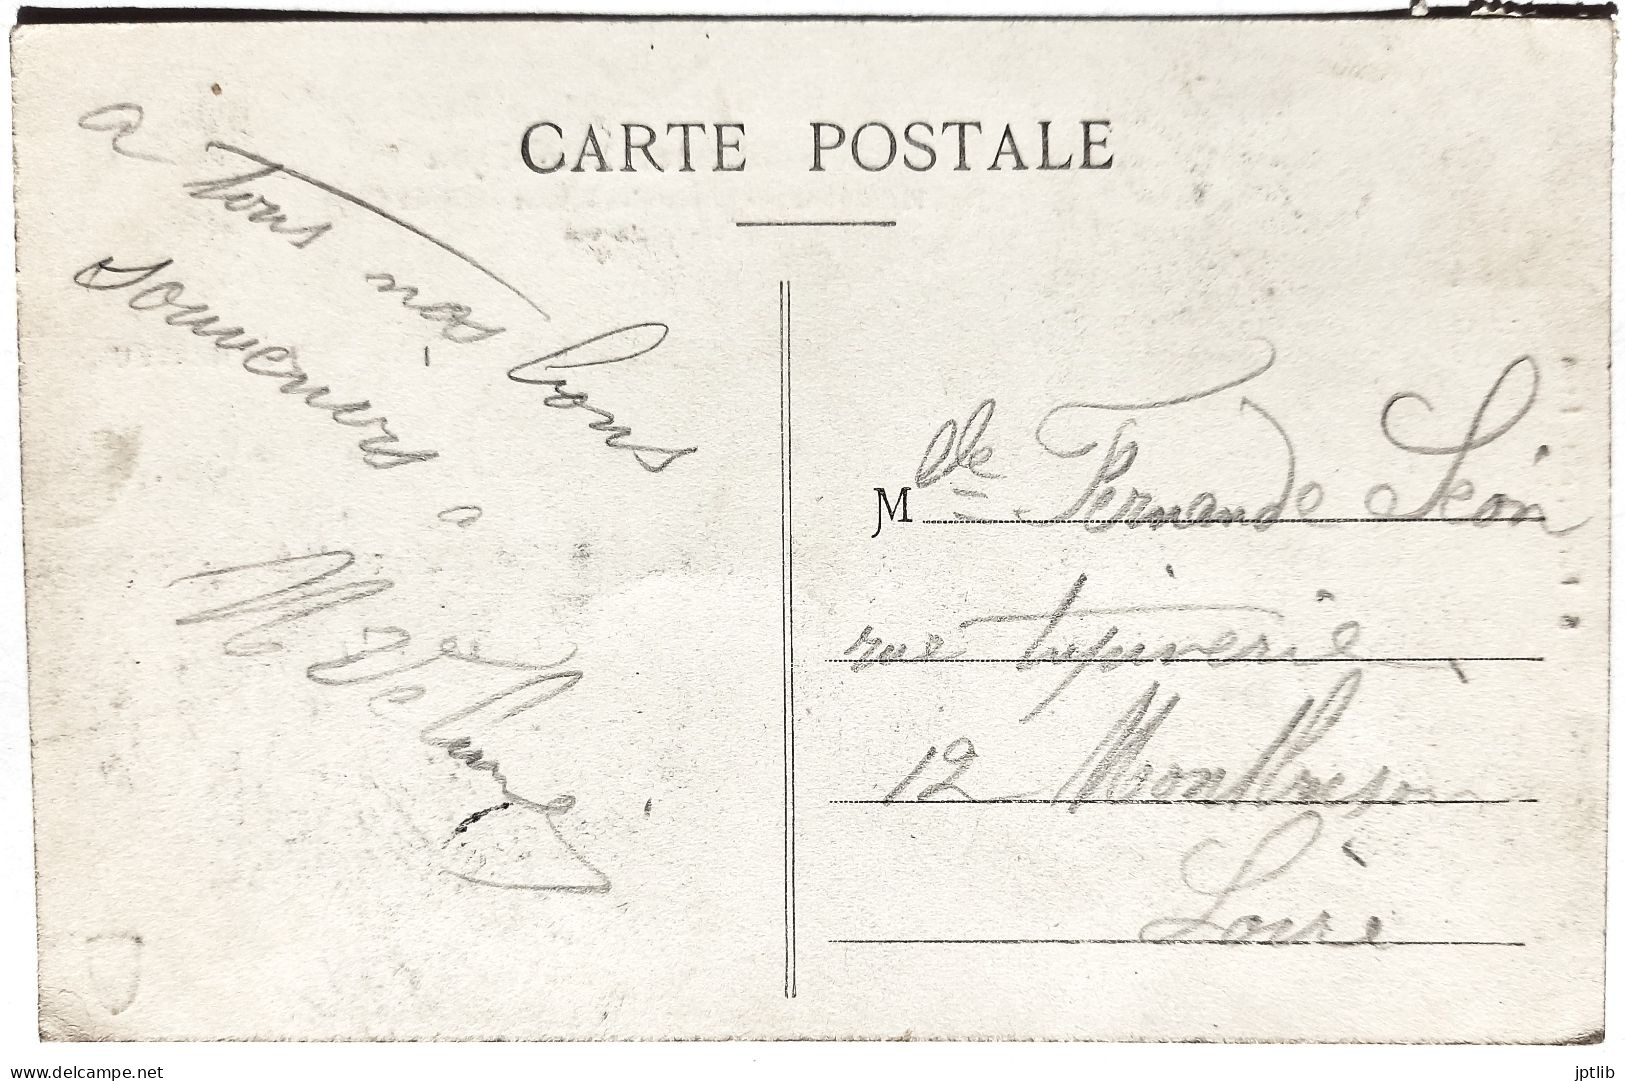 CARTE POSTALE
a Tous nos bons
souvenirs a
M
M lle Fernande Léon
rue Tupinerie
12 Montbrison
Loire
delcampe.net
jptlib